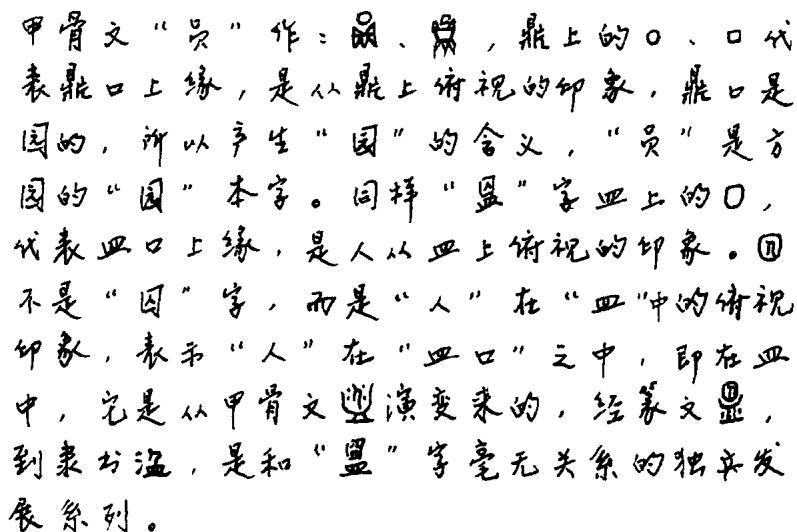 甲骨文“员”作：、，鼎上的○、口代
表鼎口上缘，是从鼎上俯视的印象，鼎口是
圆的，所以产生“圆”的含义，“员”是方
圆的“圆”本字。同样“昷”字皿上的口，
代表皿口上缘，是人从皿上俯视的印象。
不是“囚”字，而是“人”在“皿”中的俯视
印象，表示“人”在“皿口”之中，即在皿
中，它是从甲骨文演变来的，经篆文，
到隶书，是和“昷”字毫无关系的独立发
展系列。